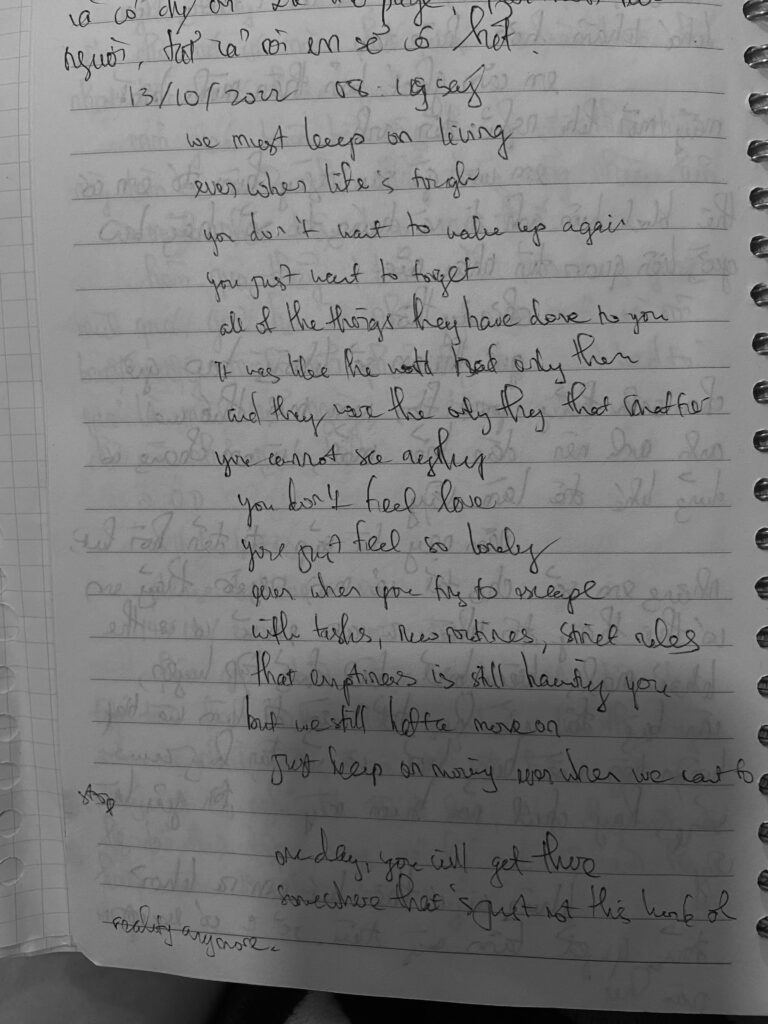 người, tất cả rồi em sẽ có hết.
13/10/2022 08:19 sáng
we must keep on living
even when life's tough
you don't want to wake up again
you just want to forget
all of the things they have done to you
It was like the world had only them
and they were the only thing that matter
you cannot see anything
you don't feel love
you just feel so lonely
even when you try to escape
with tasks, new routines, strict rules
that emptiness is still haunting you
but we still hafta move on
just keep on moving even when we want to
stop
one day, you will get there
somewhere that's just not this kind of
reality anymore.